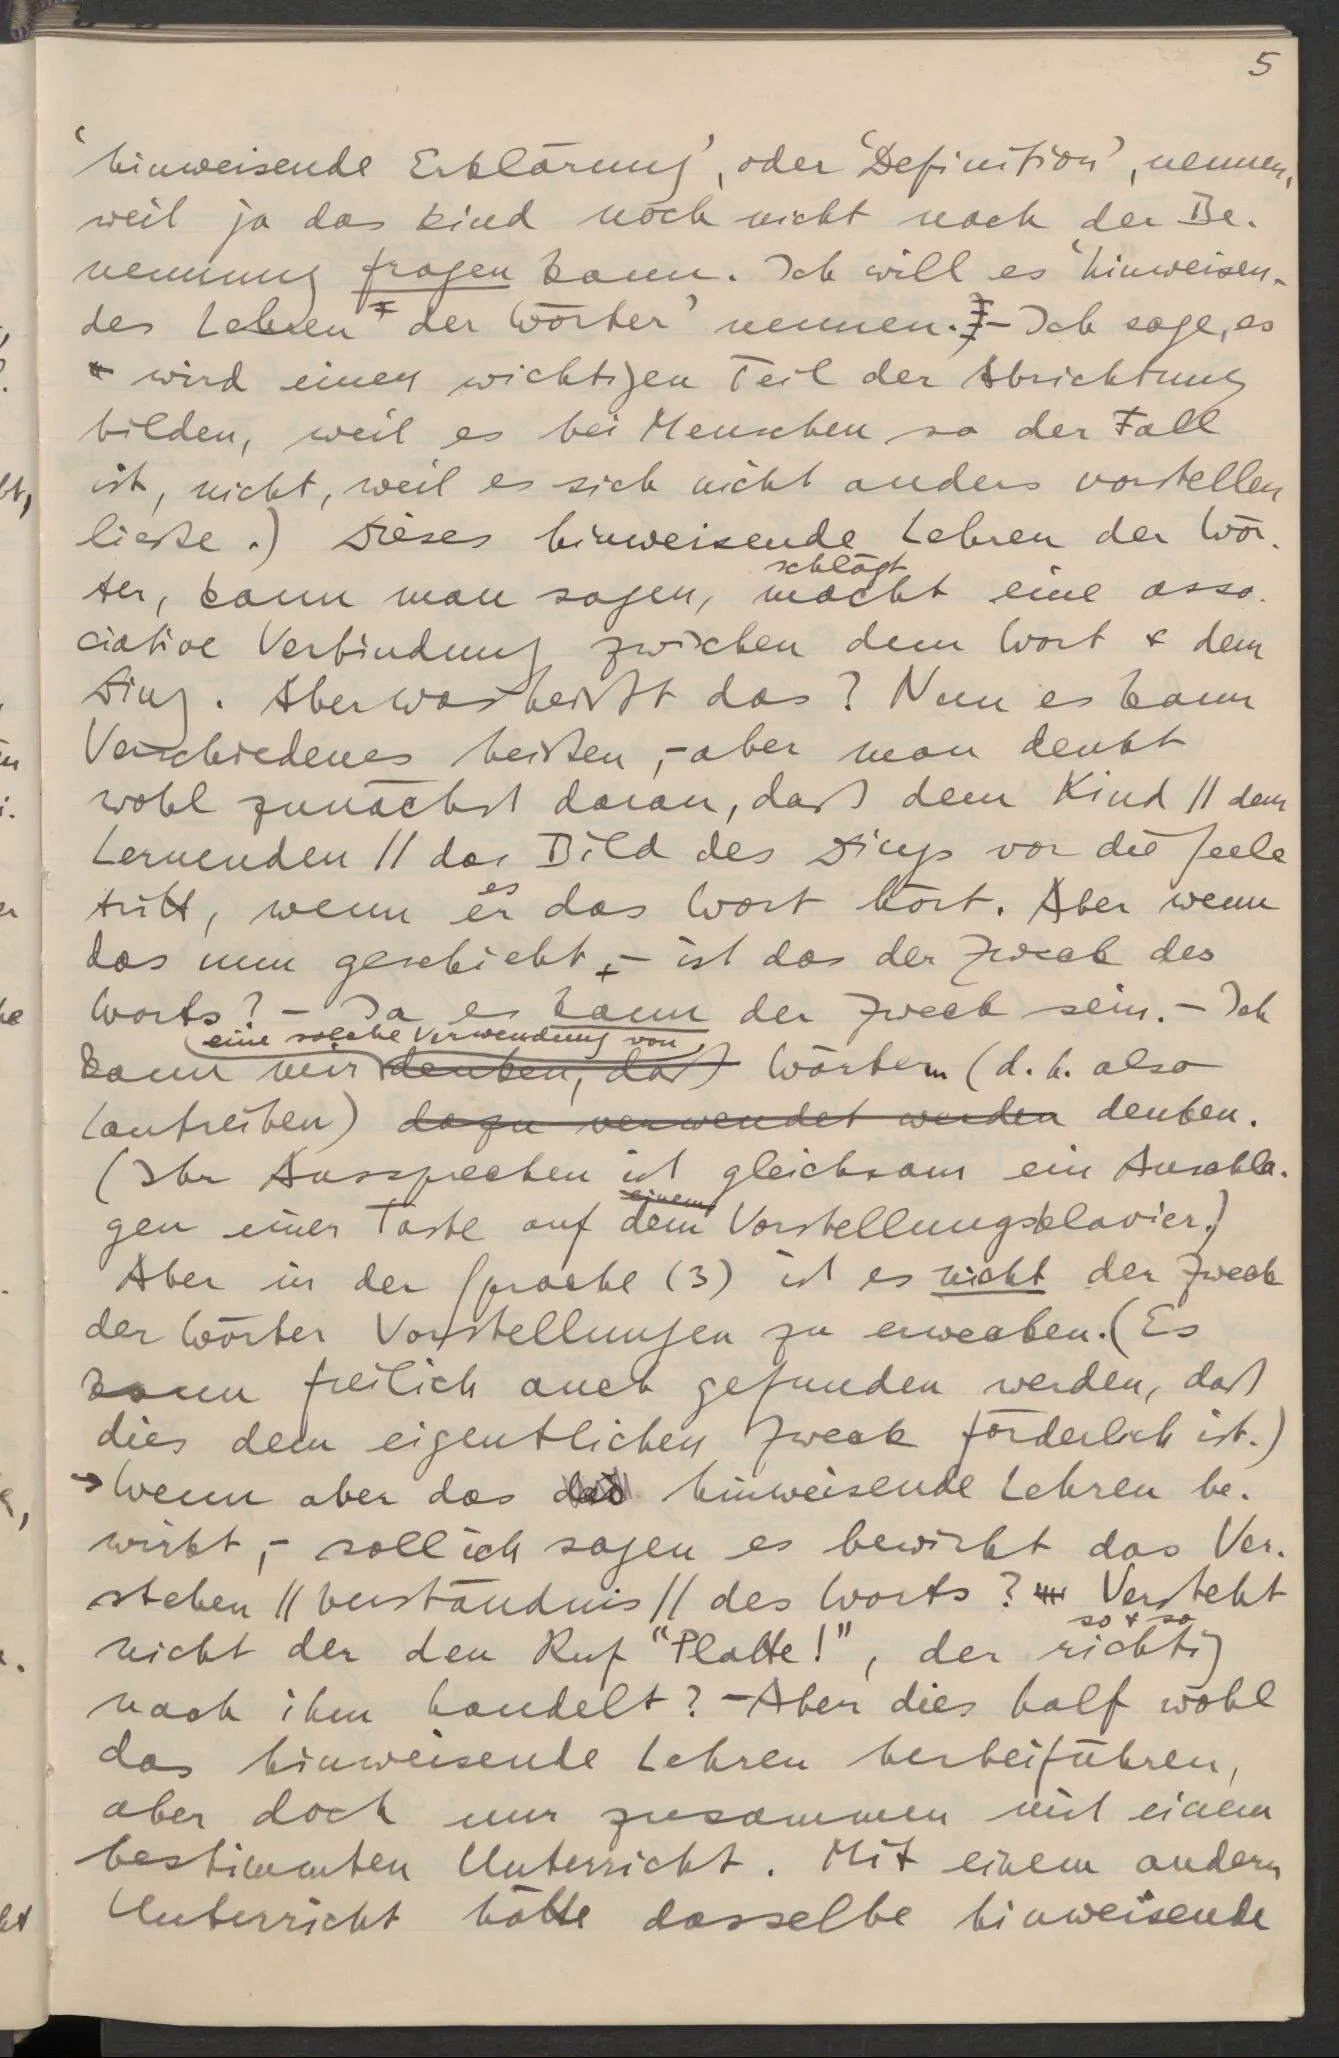 5
‘hinweisende Erklärung’, oder ‘Definition’, nennen,
weil ja das Kind noch nicht nach der Be-
nennung fragen kann. Ich will es ‘hinweisen-
des Lehren der Wörter’ nennen. – Ich sage, es
wird einen wichtigen Teil der Abrichtung
bilden, weil es bei Menschen so der Fall
ist, nicht, weil es sich nicht anders vorstellen
ließe.) Dieses hinweisende Lehren der Wör-
schlägt
ter, kann man sagen, macht eine asso-
ciative Verbindung zwischen dem Wort & dem
Ding. Aber was heißt das? Nun es kann
Verschiedenes heißen, – aber man denkt
wohl zunächst daran, daß dem Kind // dem
Lernenden // das Bild des Dings vor die Seele
es
tritt, wenn er das Wort hört. Aber wenn
das nun geschieht, – ist das der Zweck des
Worts? – Ja es kann der Zweck sein. – Ich
eine solche Verwendung von
kann mir denken, daß Wörtern (d.h. also
Lautreihen) dazu verwendet werden denken.
(Ihr Aussprechen ist gleichsam ein Anschla-
einem
gen einer Taste auf dem Vorstellungsklavier.)
Aber in der Sprache (3) ist es nicht der Zweck
der Wörter Vorstellungen zu erwecken. (Es
kann freilich auch gefunden werden, daß
dies dem eigentlichen Zweck förderlich ist.)
→ Wenn aber das das hinweisende Lehren be-
wirkt, – soll ich sagen es bewirkt das Ver-
stehen // Verständnis // des Worts? Versteht
so & so
nicht der den Ruf “Platte!”, der richtig
nach ihm handelt? – Aber dies half wohl
das hinweisende Lehren herbeiführen,
aber doch nur zusammen mit einem
bestimmten Unterricht. Mit einem andern
Unterricht hätte dasselbe hinweisende